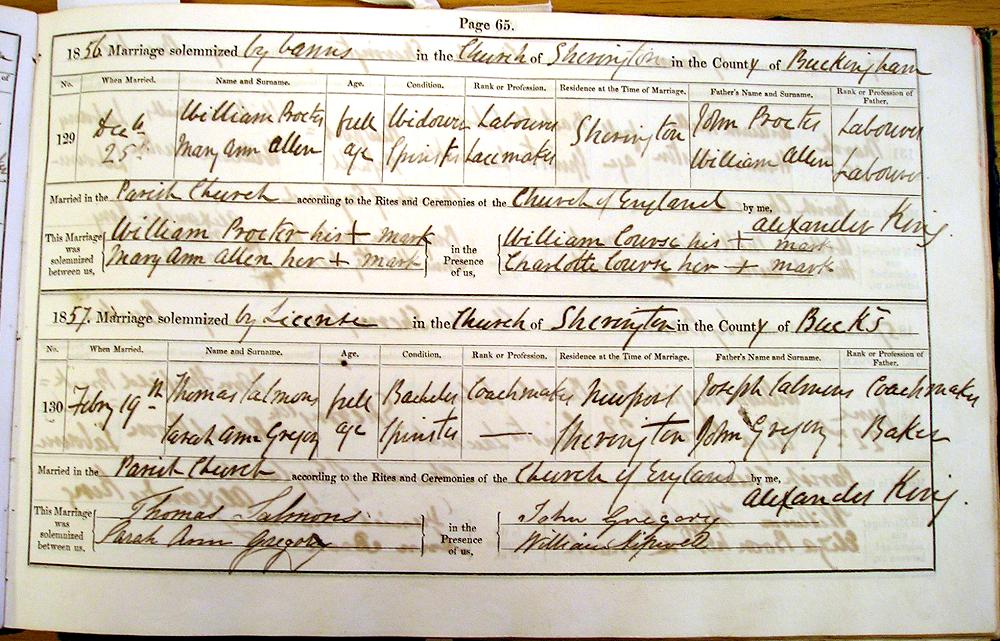 Page 65.
1856. Marriage solemnized by banns in the Church of Sherington in the County of Buckingham
No. When Married. Name and Surname. Age. Condition. Rank or Profession. Residence at the Time of Marriage. Father's Name and Surname. Rank or Profession of Father.
129 Decb William Procter full Widower Labourer Sherington John Procter Labourer
25th Mary Ann Allen age Spinster Lacemaker William Allen Labourer
Married in the Parish Church according to the Rites and Ceremonies of the Church of England by me,
Alexander King.
This Marriage was solemnized between us, William Procter his + mark in the Presence of us, William Course his + mark
Mary Ann Allen her + mark Charlotte Course her + mark
1857. Marriage solemnized by License in the Church of Sherington in the County of Bucks
No. When Married. Name and Surname. Age. Condition. Rank or Profession. Residence at the Time of Marriage. Father's Name and Surname. Rank or Profession of Father.
130 Febry 19th Thomas Salmons full Bachelor Coachmaker Newport Joseph Salmons Coachmaker
Sarah Ann Gregory age Spinster — Sherington John Gregory Baker
Married in the Parish Church according to the Rites and Ceremonies of the Church of England by me,
Alexander King.
This Marriage was solemnized between us, Thomas Salmons in the Presence of us, John Gregory
Sarah Ann Gregory William